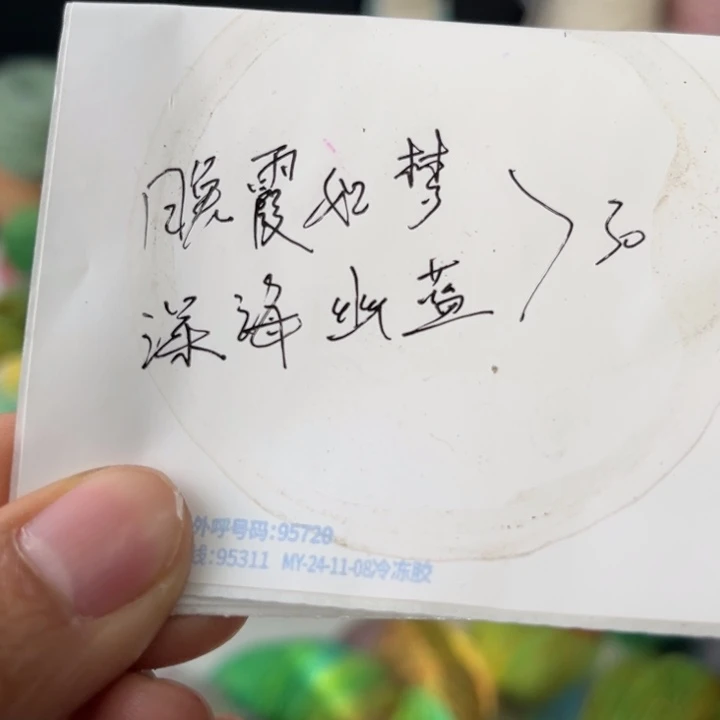 晚霞如梦
深海幽蓝
50
外呼号码:95720
线:95311 MY-24-11-08冷冻胶